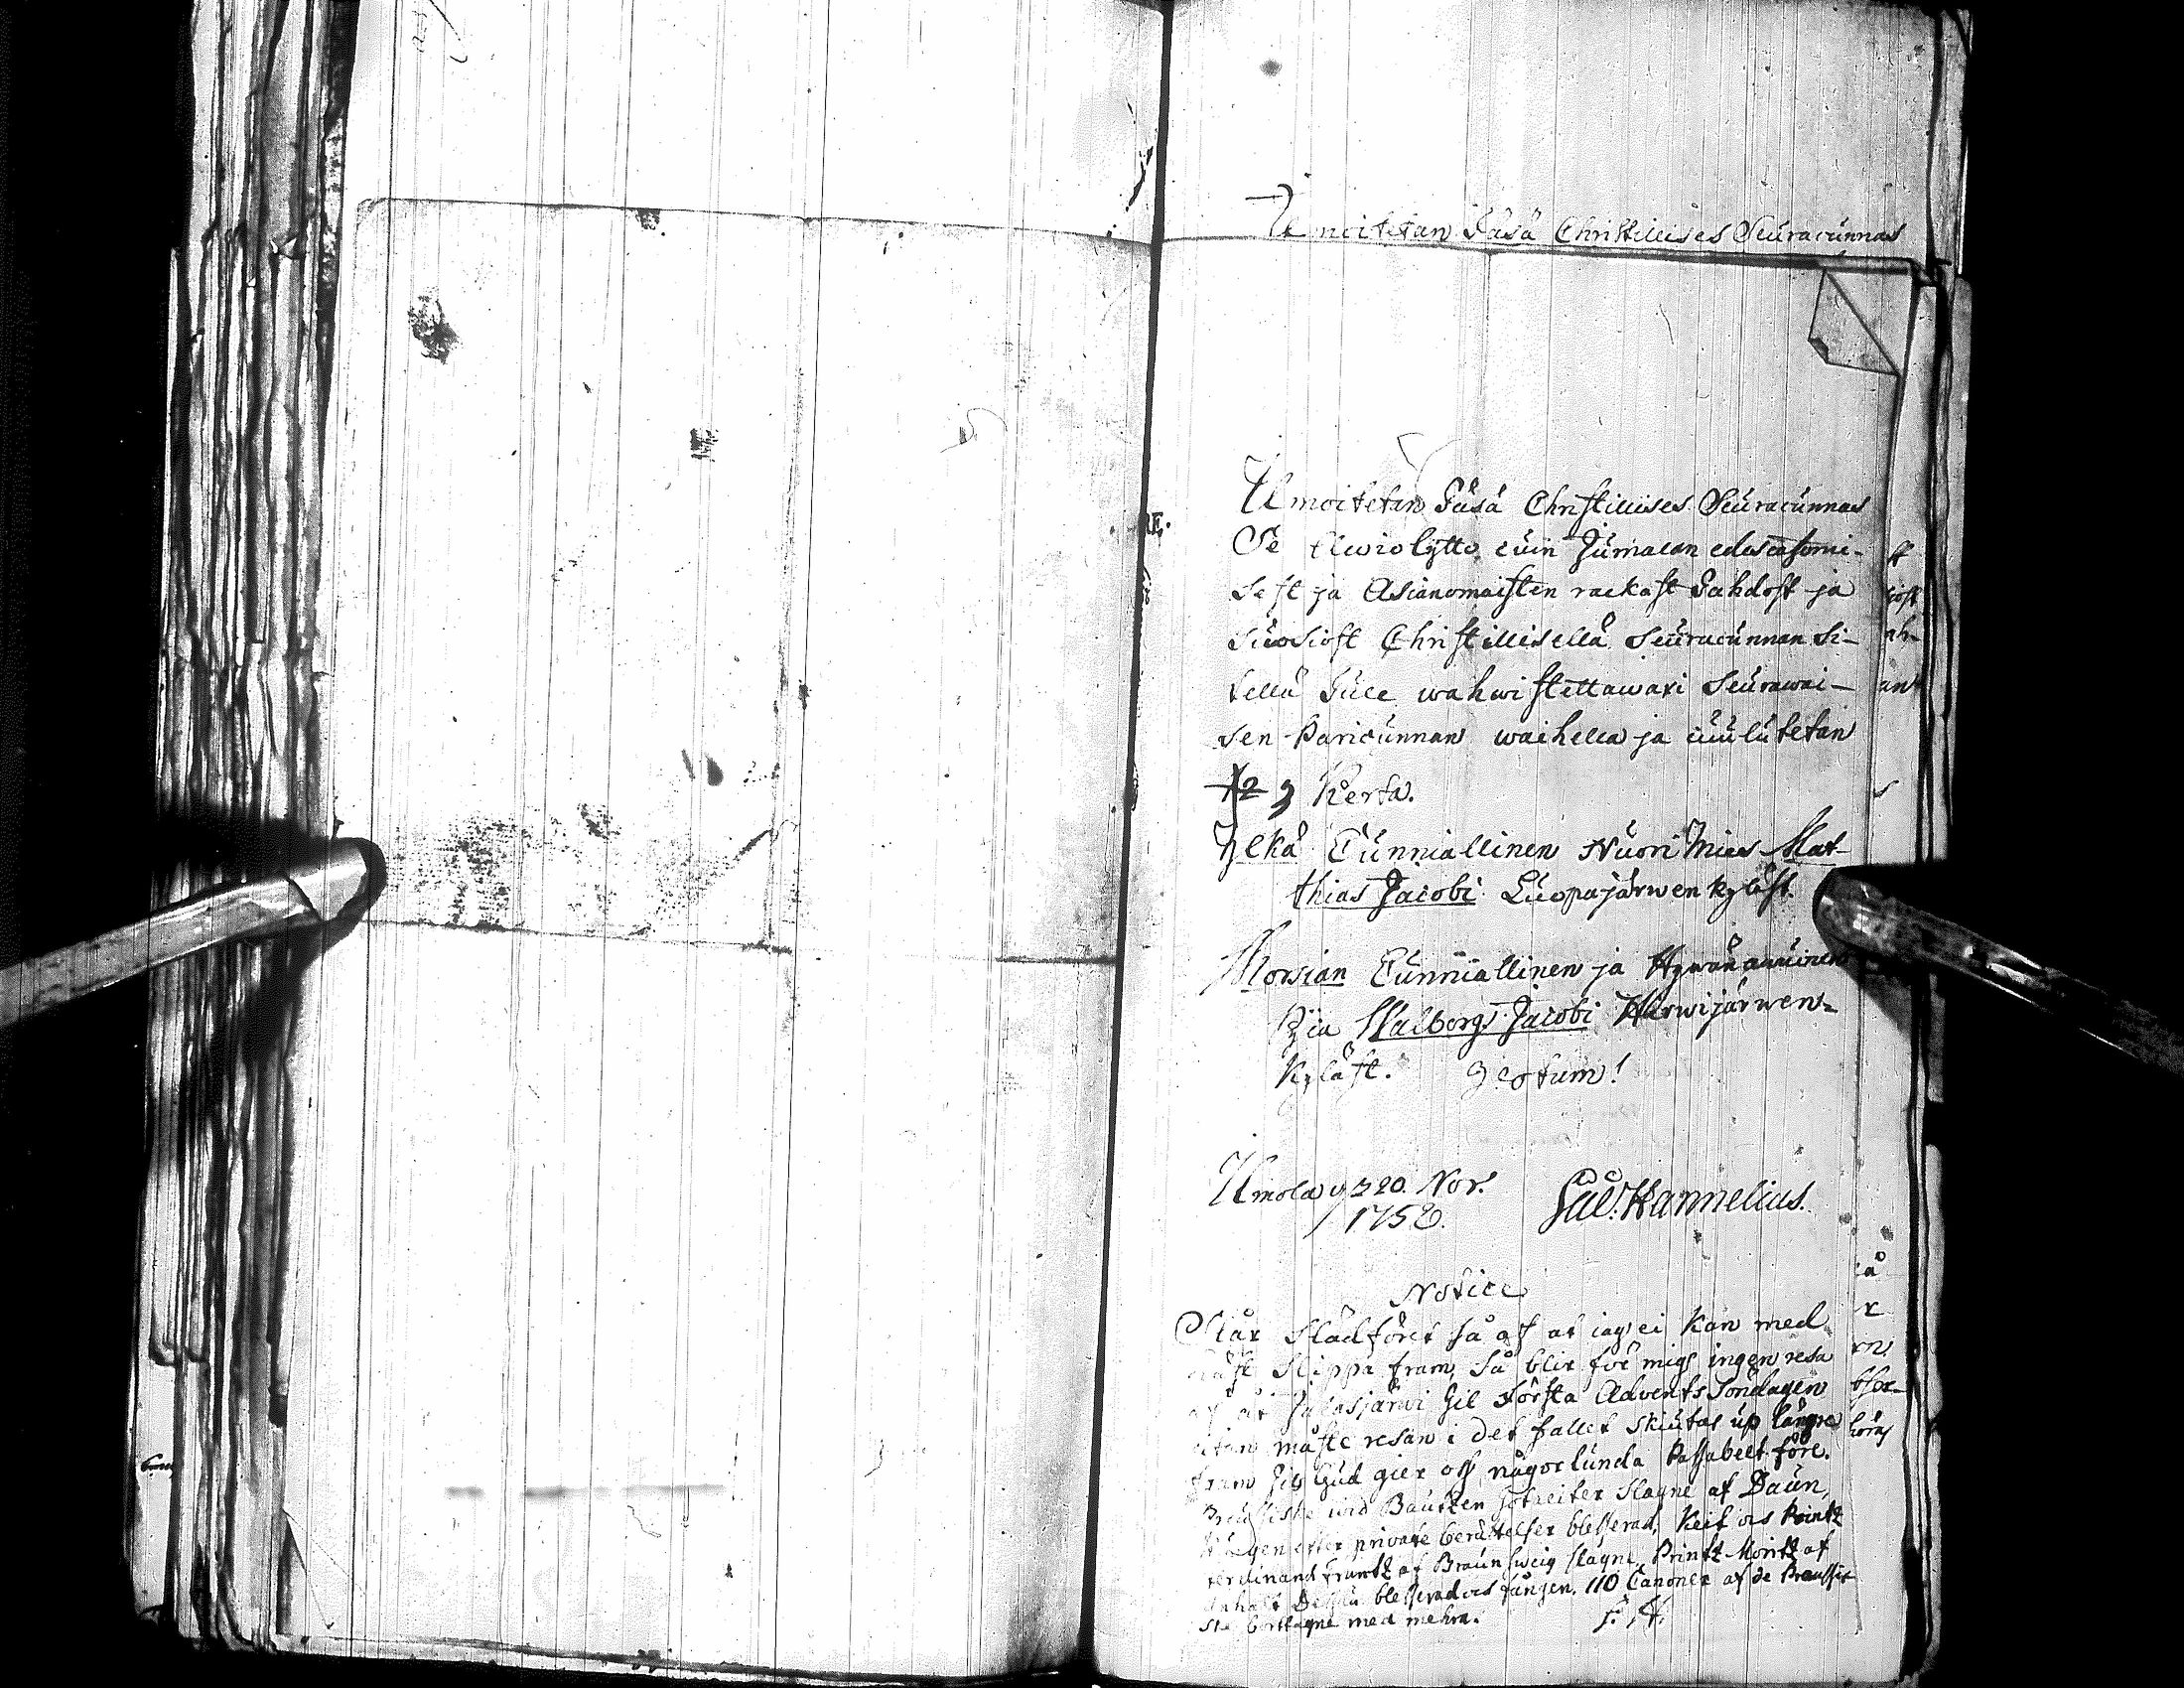 Ilmoitetan Täsä Christilises Seuracunnas
Ilmoitetan Täsä Christilises Seuracunnas
Se Awiolijtto cuin Jumalan edescatsomi-
sest ja Asianomaisten rackast Tahdost ja
Suosiost Christillisellä Seuracunnan Si-
Tellä Tulee wahwistettawaxi Seurawai-
sen Paricunnan waihella ja cuulutetan
3 Kerta.
Ylkä Cunniallinen Nuori Mies Mat-
thias Jacobi Luopajärwen kyläst
Morsian Cunniallinen ja Hywänawuinen
Pijca Walborg Jacobi Hirwijärwen-
Kyläst. Jacobi
Ilmola 20. Nov.
1758.
Hannelius.
Notice
Står Slädföret så af at iag ei kan med
Släppa fram, Så blir för mig ingen resa
af åt Jalasjärwi til Första Advents Söndagen
utan måste resan i det fallet Skiutas up längre
fram til Gud gier oss någorlunda Passabelt före.
Preussiske wid Bautzen Slagne af Daun,
Kungen efter private berättelser blesserad, Keit och Printz
Ferdinand Frantz af Braunsweig Slagne, Printz Moritz af
Anhalt Dessau blesserad och fången. 110 Canoner af de Preussi-
ske borttagne med mehra.